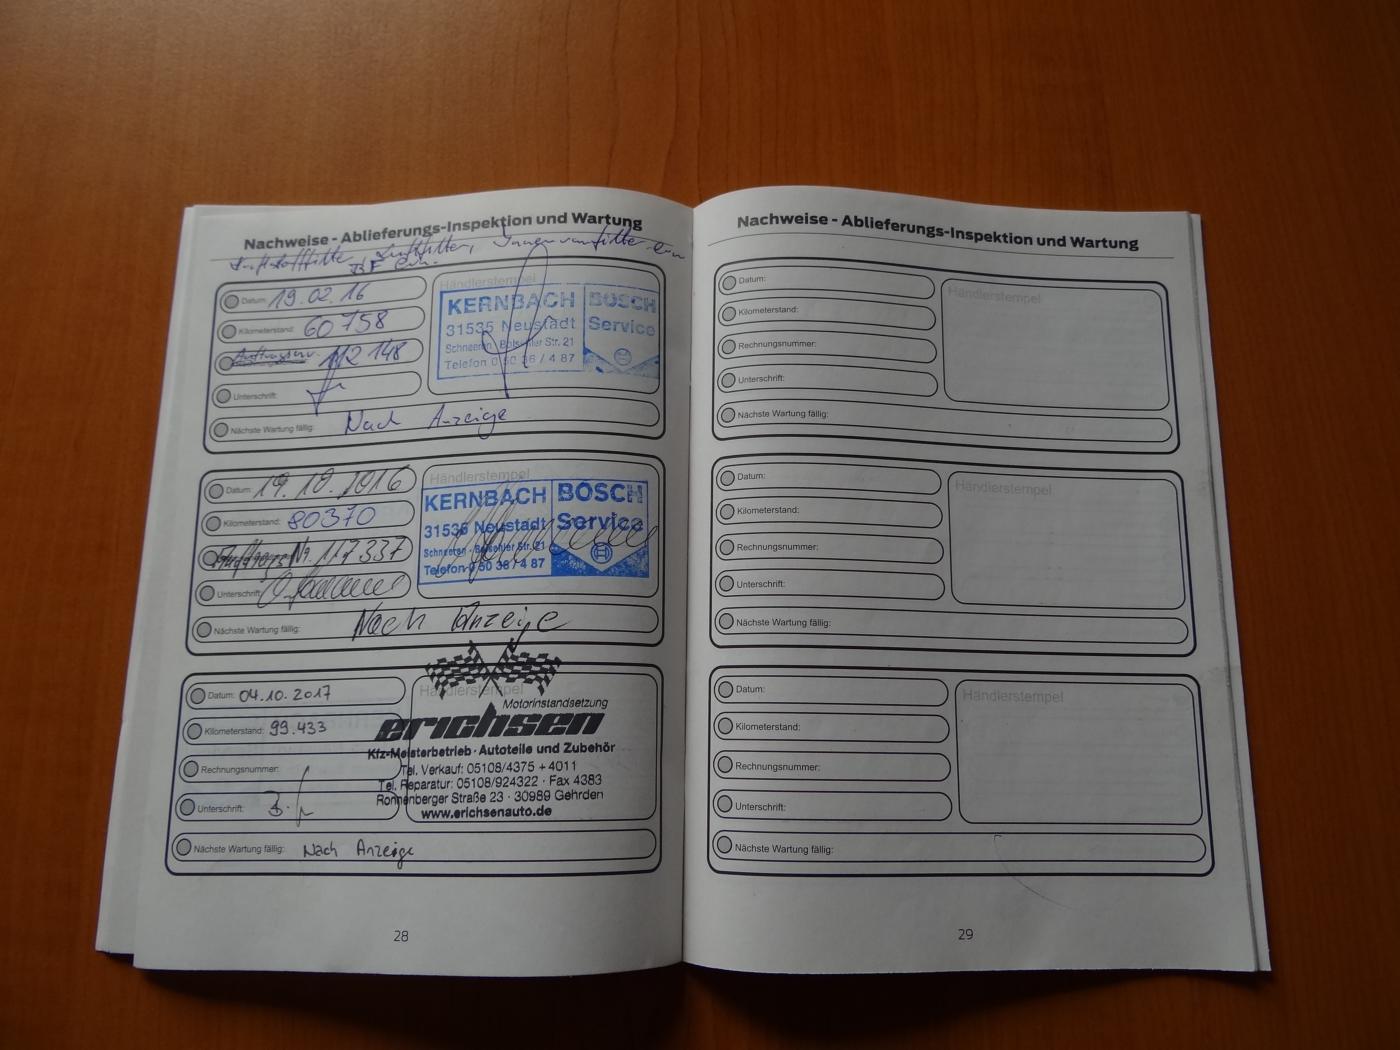 Nachweise - Ablieferungs-Inspektion und Wartung
Luftfilter, Innenraumfilter
BF
Datum: 19.02.16
Kilometerstand: 60 758
Auftragsnr. 112 148
Unterschrift:
Nächste Wartung fällig: Nach Anzeige
Händlerstempel
KERNBACH BOSCH
31535 Neustadt Service
Schneeren · Str. 21
Telefon 0 50 36 / 4 87
Datum: 19.10.2016
Kilometerstand: 80370
Nr. 117337
Unterschrift:
Nächste Wartung fällig: Nach Anzeige
Händlerstempel
KERNBACH BOSCH
31535 Neustadt Service
Schneeren - Str. 21
Telefon 0 50 36 / 4 87
Datum: 04.10.2017
Kilometerstand: 99.433
Rechnungsnummer:
Unterschrift:
Nächste Wartung fällig: Nach Anzeige
Händlerstempel
Motorinstandsetzung
erichsen
Kfz-Meisterbetrieb · Autoteile und Zubehör
Tel. Verkauf: 05108/4375 + 4011
Tel. Reparatur: 05108/924322 · Fax 4383
Ronnenberger Straße 23 · 30989 Gehrden
www.erichsenauto.de
28
Nachweise - Ablieferungs-Inspektion und Wartung
Datum:
Kilometerstand:
Rechnungsnummer:
Unterschrift:
Nächste Wartung fällig:
Händlerstempel
Datum:
Kilometerstand:
Rechnungsnummer:
Unterschrift:
Nächste Wartung fällig:
Händlerstempel
Datum:
Kilometerstand:
Rechnungsnummer:
Unterschrift:
Nächste Wartung fällig:
Händlerstempel
29